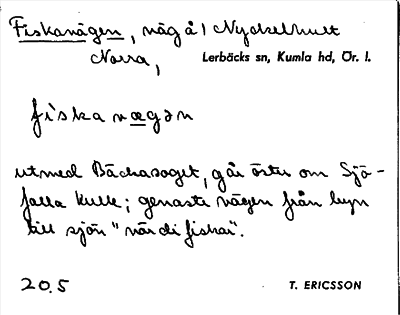 Fiskavägen, väg å Nyckelhult
Norra, Lerbäcks sn, Kumla hd, Ör. l.
fiskavægən
utmed Bäckaskoget, går öster om Sjö-
falla kulle; genaste vägen från byn
till sjön "när di fiskar".
20.5 T. ERICSSON